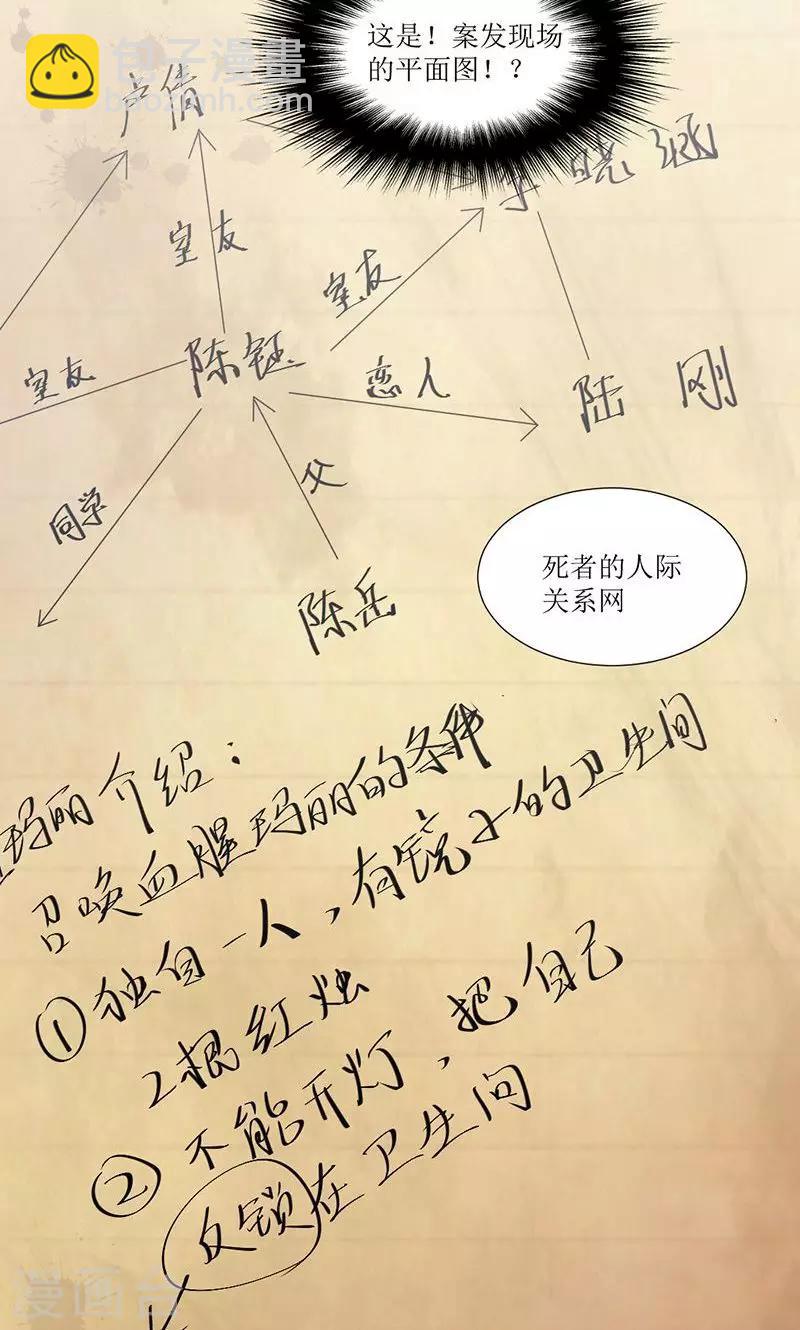 这是！案发现场
的平面图！？
包子漫畫
baozimh.com
卢倩
晓涵
室友
室友
陈钰
室友
恋人
陆刚
同学
父
陈岳
死者的人际
关系网
玛丽介绍：
召唤血腥玛丽的条件
①独自一人，有镜子的卫生间
2根红烛
②不能开灯，把自己
反锁在卫生间
漫画台